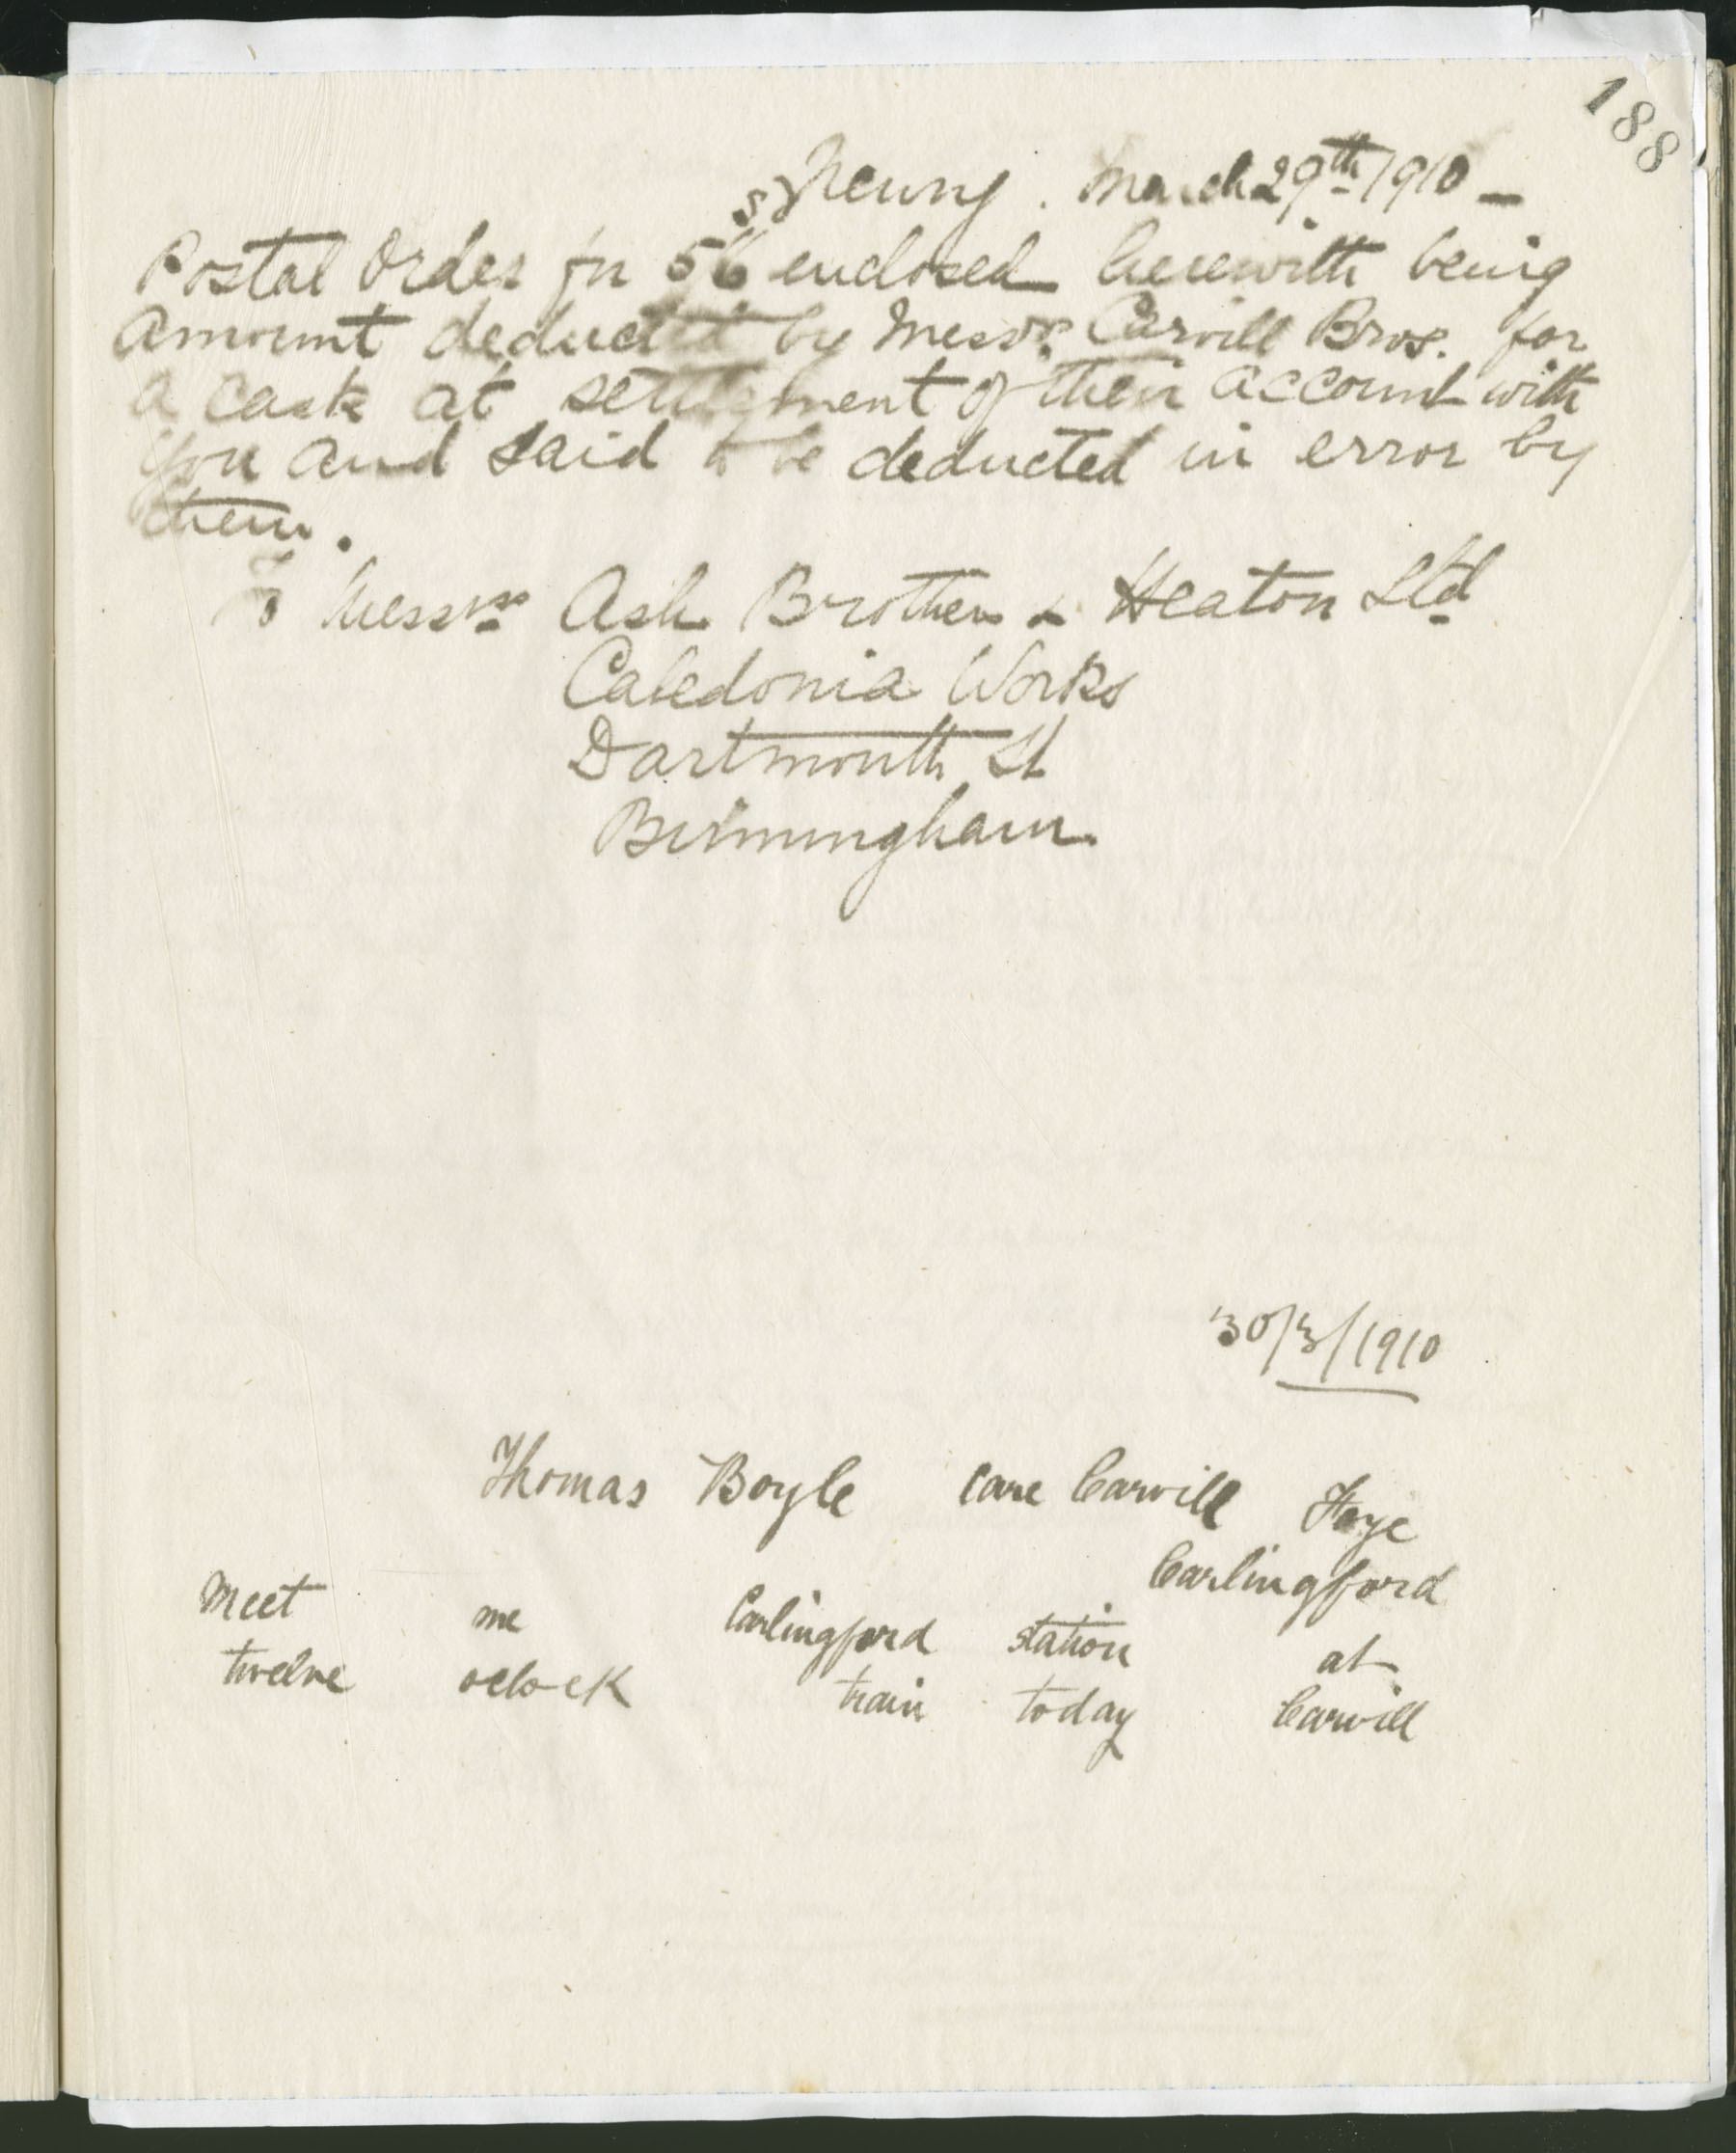 188
Newry. March 29th 1910 –
Postal Order for 5s/6 enclosed herewith being
amount deducted by Messrs. Carvill Bros. for
a cask at settlement of their account with
you and said to be deducted in error by
them.
To Messrs Ash Brothers & Heaton Ltd
Caledonia Works
Dartmouth St
Birmingham
30/3/1910
Thomas Boyle care Carvill
Carlingford
Meet me Carlingford station at
twelve oclock train today Carvill